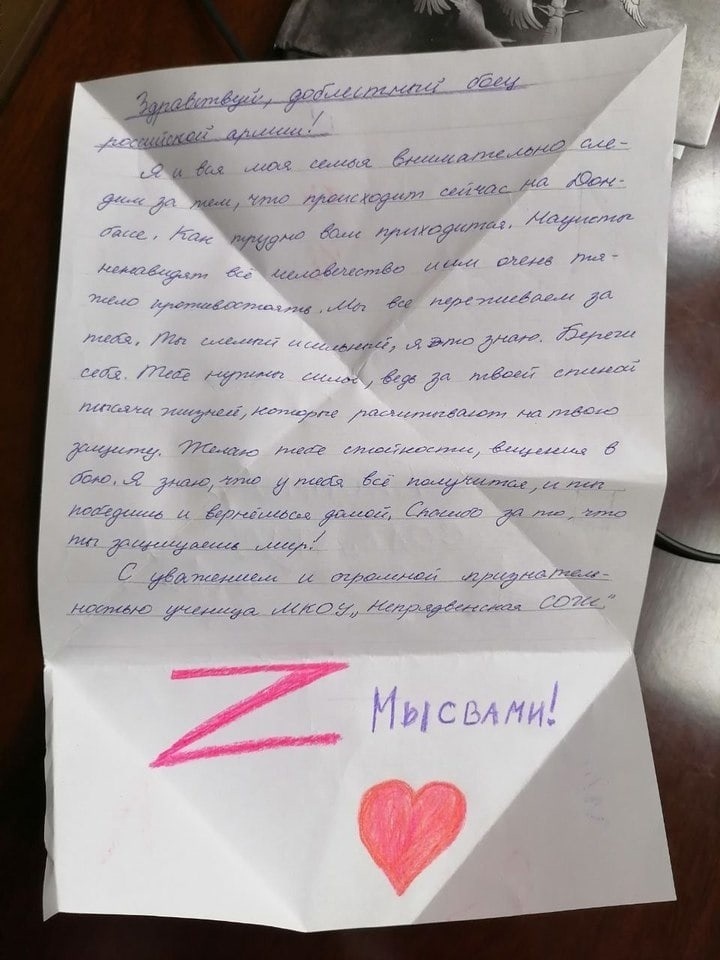 Здравствуй, доблестный боец
российской армии!
Я и вся моя семья внимательно сле-
дим за тем, что происходит сейчас на Дон-
басе. Как трудно вам приходится. Нацисты
ненавидят всё человечество и им очень тя-
жело противостоять. Мы все переживаем за
тебя. Ты смелый и сильный, я это знаю. Береги
себя. Тебе нужны силы, ведь за твоей спиной
тысячи жизней, которые расчитывают на твою
защиту. Желаю тебе стойкости, везения в
бою. Я знаю, что у тебя всё получится, и ты
победишь и вернёшься домой. Спасибо за то, что
ты защищаешь мир!
С уважением и огромной признатель-
ностью ученица МКОУ „Непрядвенская СОШ"
Z Мы с вами!